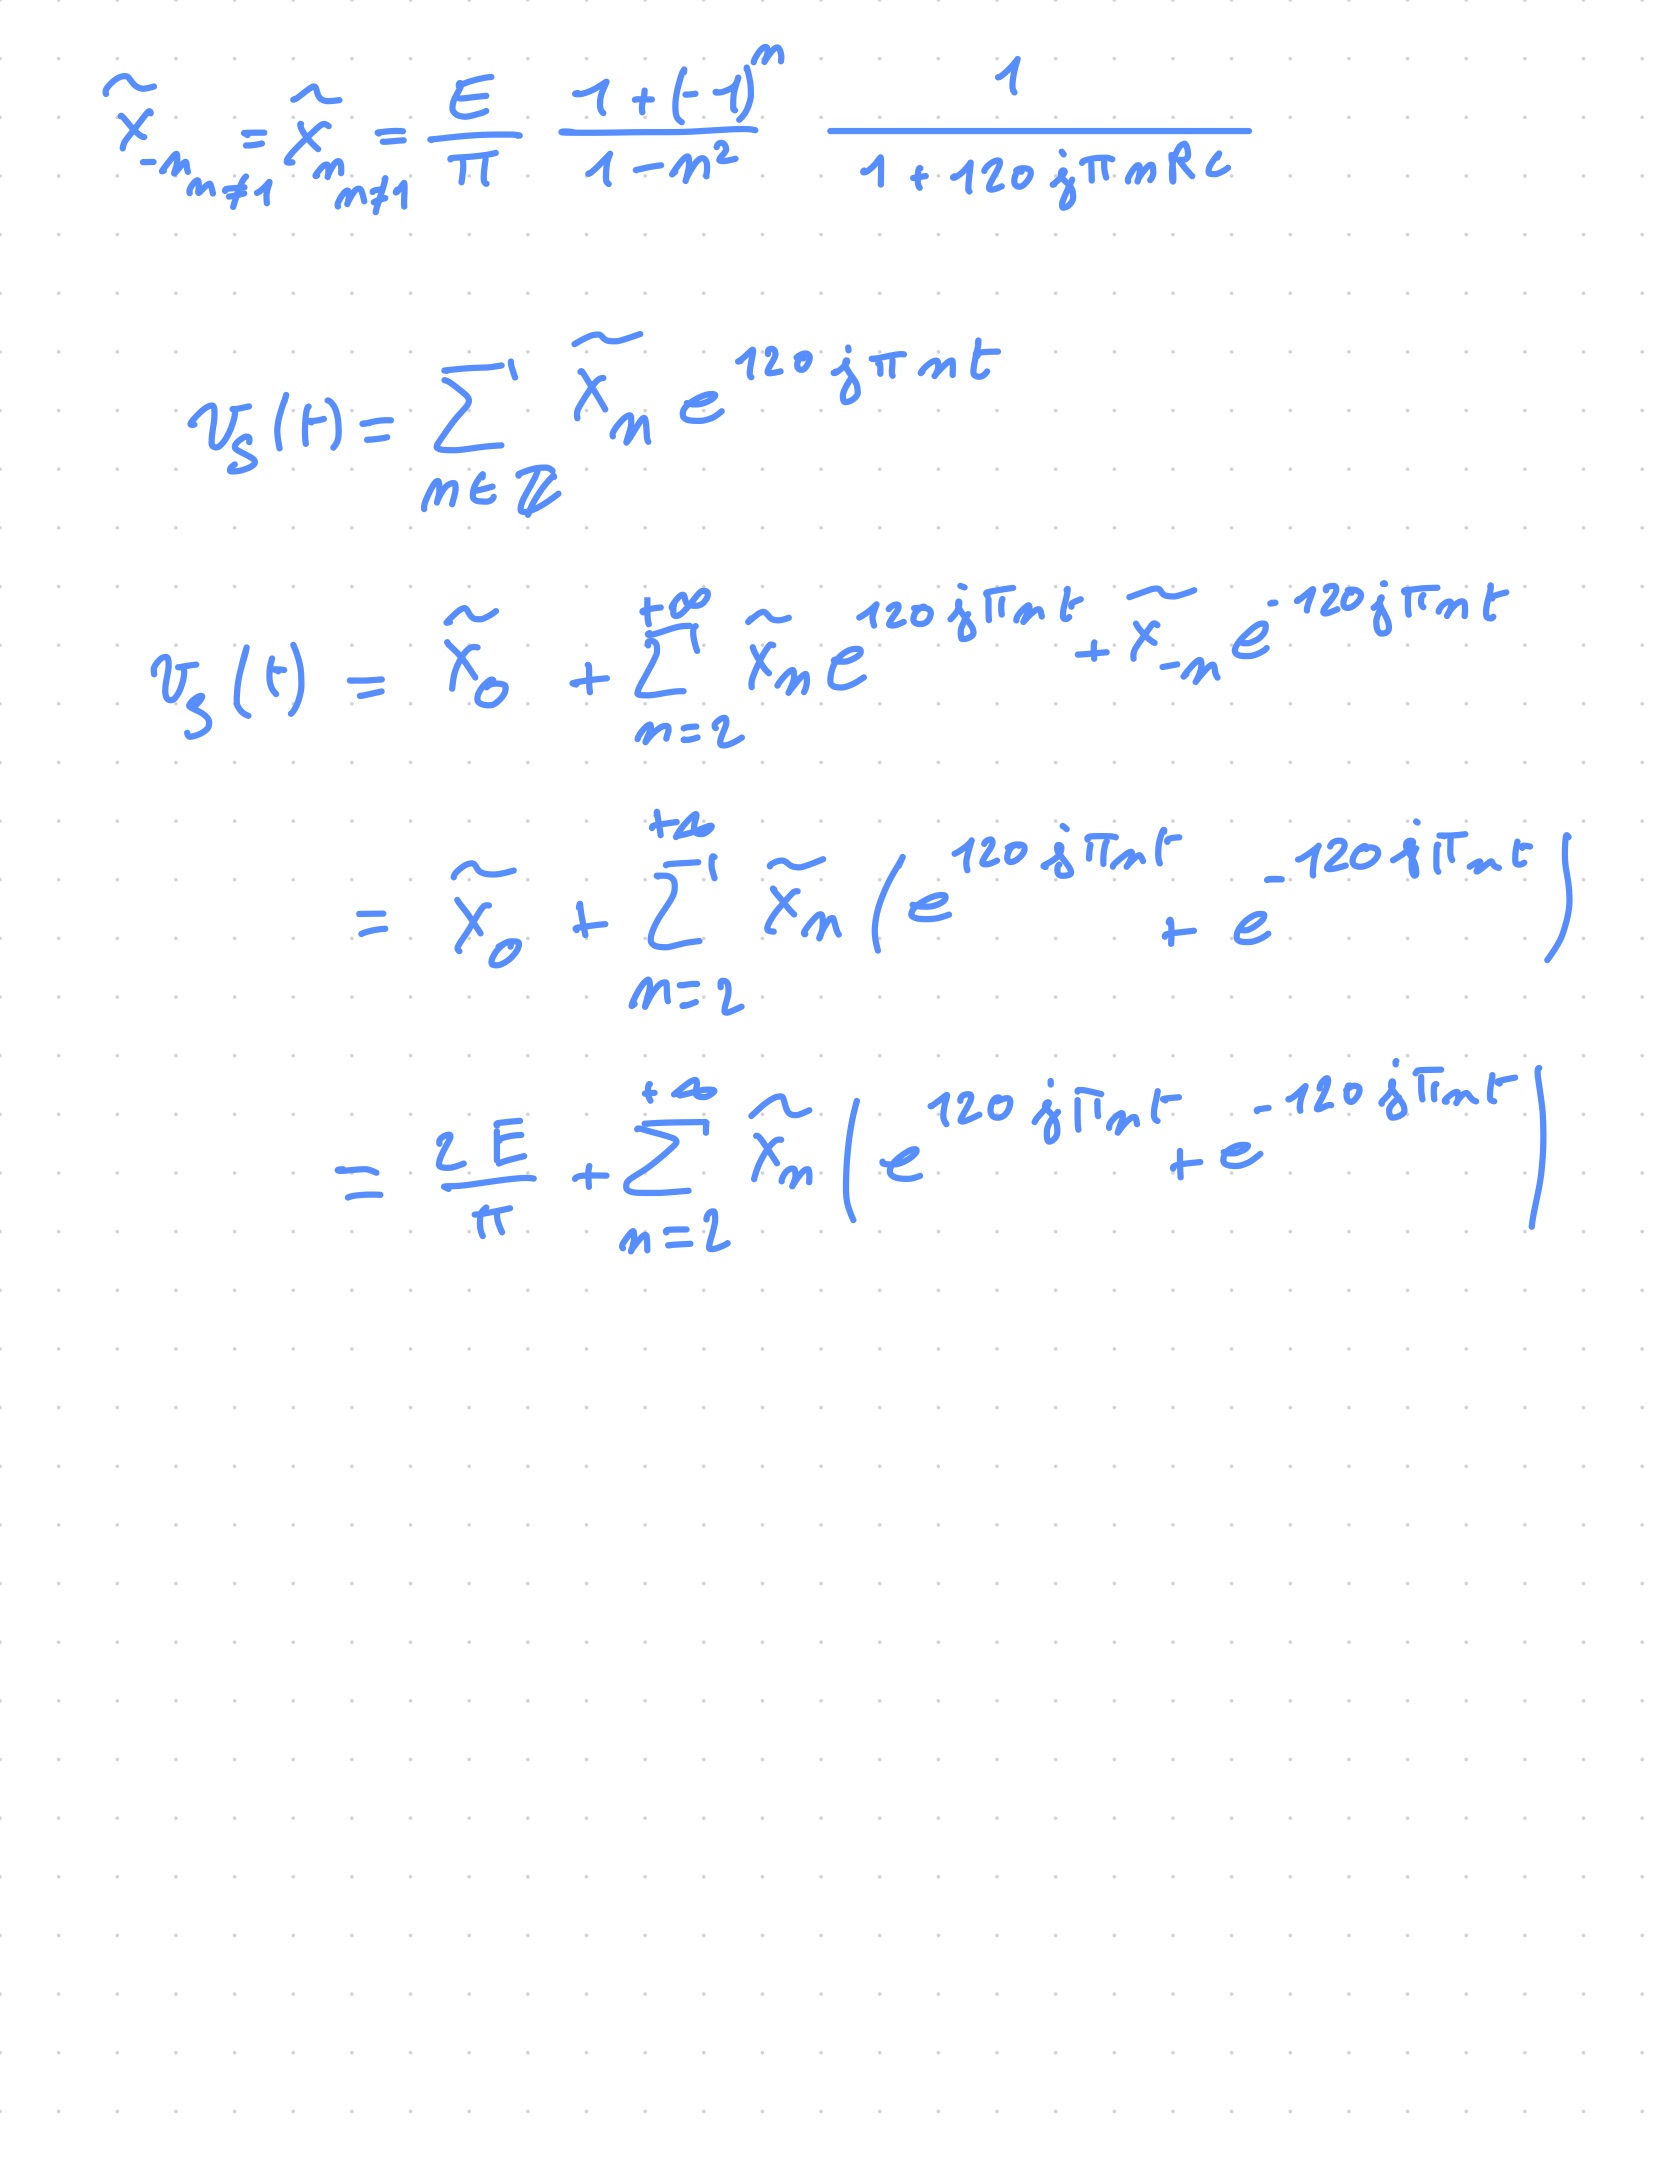 x̃_{-n, n≠1} = x̃_{n, n≠1} = \frac{E}{π} \frac{1+(-1)^n}{1-n^2} \frac{1}{1+120jπnRc}
v_s(t) = \sum_{n∈ℤ} x̃_n e^{120jπnt}
v_s(t) = x̃_0 + \sum_{n=2}^{+∞} x̃_n e^{120jπnt} + x̃_{-n} e^{-120jπnt}
= x̃_0 + \sum_{n=2}^{+∞} x̃_n (e^{120jπnt} + e^{-120jπnt})
= \frac{2E}{π} + \sum_{n=2}^{+∞} x̃_n (e^{120jπnt} + e^{-120jπnt})